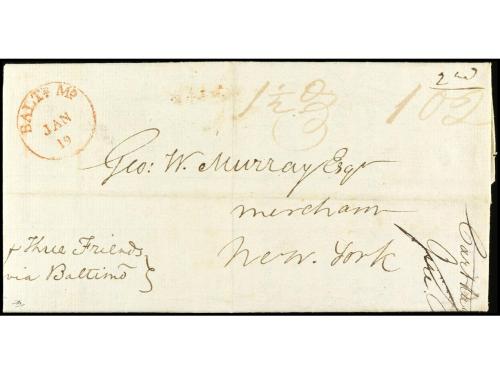 BALTE MD
JAN
19
2nd
Geo: W. Murray Esqr
merchant
New. York
p Three Friends
via Baltimo